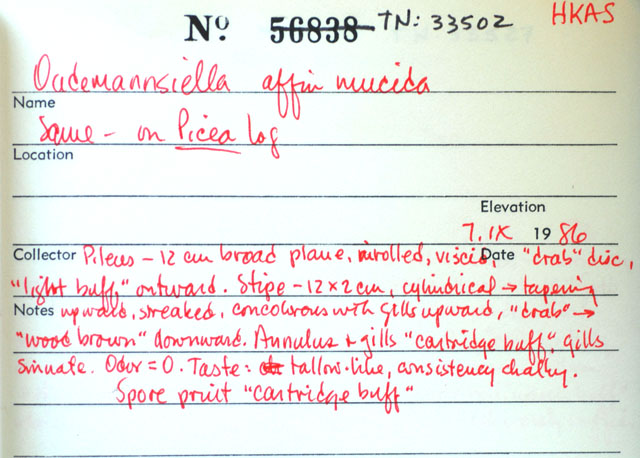 Nº 56838 TN: 33502 HKAS
Oudemannsiella affin mucida
Name
Same - on Picea log
Location
Elevation
7.IX 1986
Collector Pileus - 12 cm broad plane, inrolled, viscid, Date "drab" disc,
"light buff" outward. Stipe - 12 x 2 cm, cylindrical → tapering
Notes upward, streaked, concolorous with gills upward, "drab" →
"wood brown" downward. Annulus + gills "cartridge buff". gills
sinuate. Odor = 0. Taste: tallow-like, consistency chalky.
Spore print "cartridge buff"